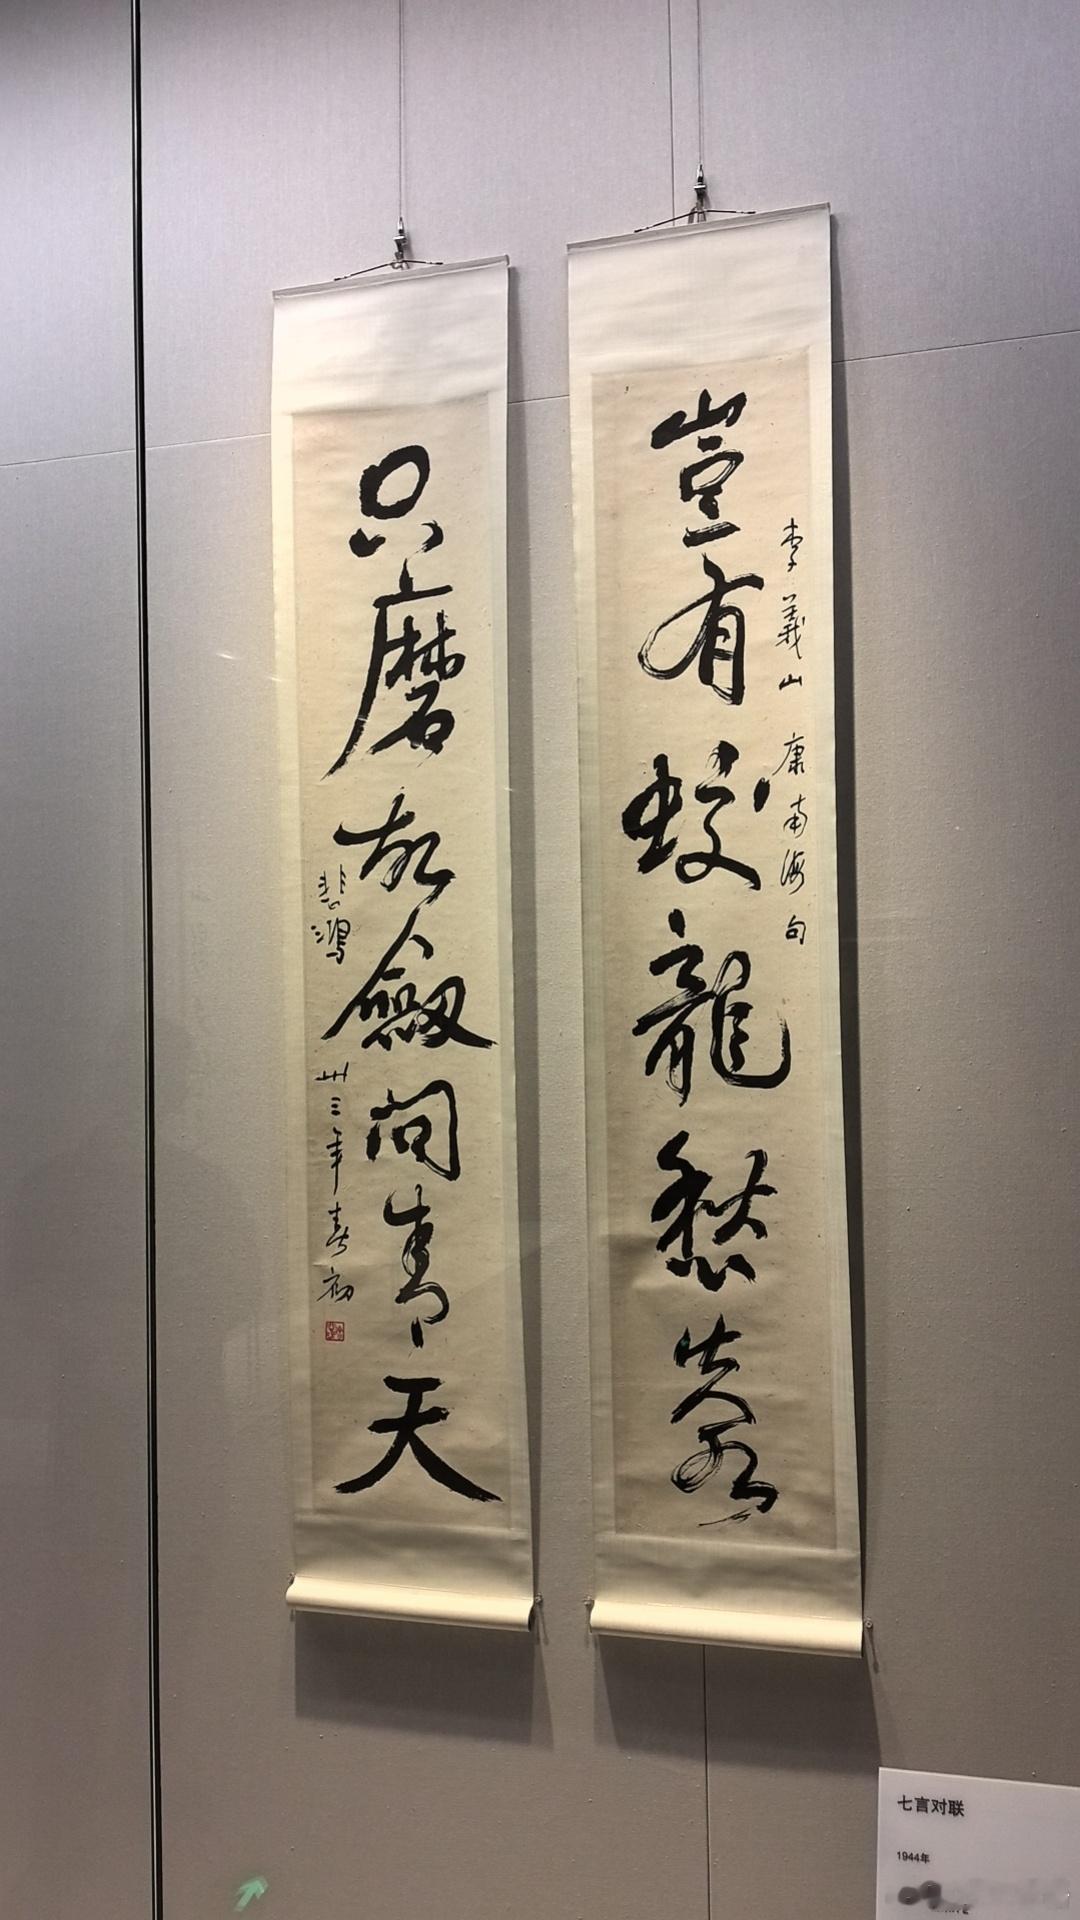 豈有蛟龍愁失水
李義山 康南海句
只磨古劍問青天
悲鴻
卅三年春初
七言对联
1944年